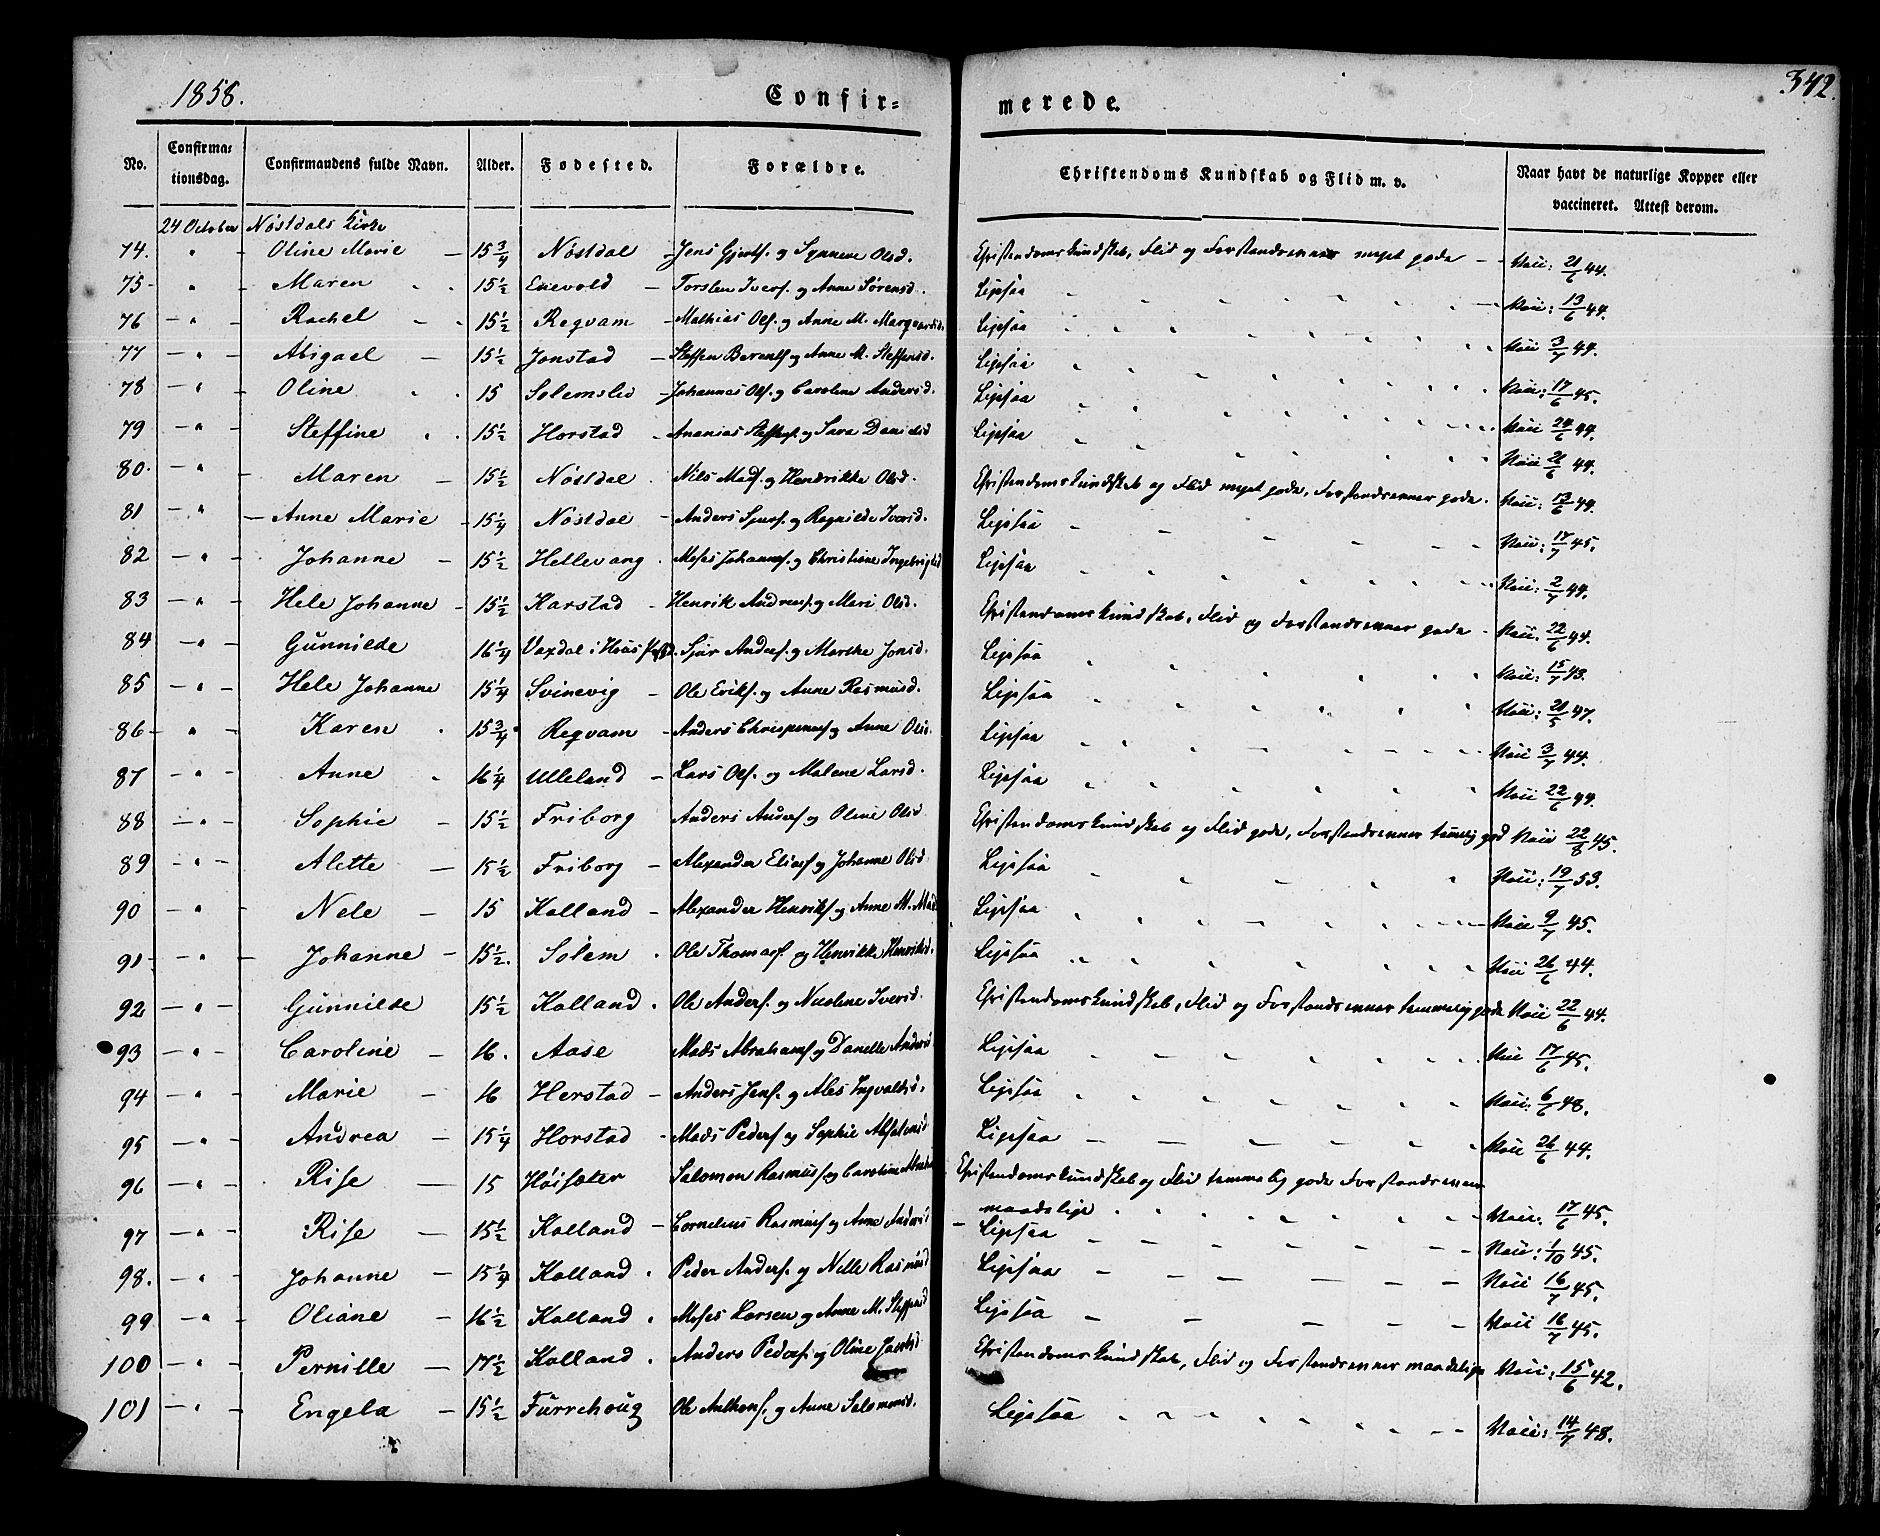 1858.
Confir-
merede.
342.
No.
Confirma-
tionsdag.
Confirmandens fulde Navn.
Alder.
Fødested.
Forældre.
Christendoms Kundskab og Flid m. v.
Naar havt de naturlige Kopper eller
vaccineret. Attest derom.
24 October Nøstdals Kirke
74. " Oline Marie – 15 3/4 Nøstdal – Jens Gjertss. og Synneve Olsd. Christendomskundskab, Flid og Forstandsevner meget gode – Vacc: 21/6 44.
75 - " - Maren 15 1/2 Enevold – Torsten Iverss. og Anne Sørensd. Ligesaa Vacc: 13/6 44.
76 – " – Rachel 15 1/2 Reqvam – Mathias Ols. og Anne M. Ligesaa Vacc: 3/7 44.
77 – " – Abigael – 15 1/2 Jonstad – Steffen Berents. og Anne M. Steffensd. Ligesaa Vacc: 17/6 45.
78 – " – Oline 15 Solemslid – Johannes Ols. og Caroline Andersd. Ligesaa Vacc 24/6 44.
79 – " – Steffine 15 1/2 Horstad – Ananias Steffens. og Sara Danielsd Ligesaa Vacc 21/6 44.
80. – " Maren – 15 1/2 Nøstdal Nils Mads. og Hendrikke Olsd. Christendomskundskab og Flid meget gode, Forstandsevner gode. Vacc: 13/6 44.
81 – " – Anne Marie – 15 1/4 Nøstdal – Anders Sjurs. og Ragnilde Iversd. Ligesaa Vacc: 17/7 45.
82 – " – Johanne – 15 1/2 Hellevang Moses Johanness. og Christiane Ingebrigtsd Ligesaa Vacc: 2/7 44.
83 – " – Hele Johanne – 15 1/2 Karstad – Henrik Andreass. og Mari Olsd. Christendomskundskab, Flid og Forstandsevner gode – Vacc. 22/6 44.
84 – " – Gunnilde 16 1/4 Vaxdal i Haus Sjur Anders. og Marthe Jonsd. Ligesaa Vacc: 15/7 43.
85 – " – Hele Johanne 15 1/4 Svinevig – Ole Eriks. og Anne Rasmusd. Ligesaa Vacc: 21/5 47.
86 – " – Karen 15 3/4 Reqvam – Anders og Anne Olsd. Ligesaa Vacc 3/7 44.
87 – " – Anne 16 1/4 Ulleland – Lars Ols. og Malene Larsd. Ligesaa Vacc 22/6 44.
88 – " – Sophie – 15 1/2 Friborg Anders Anders. og Oline Olsd Christendomskundskab og Flid gode, Forstandsevner temelig god Vacc 22/8 45.
89 – " – Alette – 15 1/2 Friborg – Alexander Elias. og Johanne Olsd Ligesaa Vacc: 19/7 53.
90 – " – Nele – 15 Kalland – Alexander Henriks. og Anne M. Ligesaa Vacc 9/7 45.
91 – " – Johanne – 15 1/2. Solem Ole Thomass. og Henrikke Henriksd. Ligesaa Vacc 26/6 44.
92 – " – Gunnilde 15 1/2 Kalland Ole Anders. og Nicoline Iversd. Christendomskundskab, Flid og Forstandsevner temmelig gode Vacc 22/6 44.
93 – " – Caroline – 16. Aase Mads Abrahams. og Danelle Andersd Ligesaa Vacc 17/6 45.
94 – " – Marie – 16 Herstad – Anders Jens. og Ales Ingvaldsd. Ligesaa Vacc: 6/6 48.
95 – " – Andrea – 15 1/4 Horstad – Mads Peders. og Sophie Absalonsd Ligesaa Vacc: 26/6 44.
96 – " – Rise – 15 Høisæter Salomon Rasmuss. og Caroline Christendomskundskab og Flid temmelig gode Forstandsevner
maadelige Vacc: 17/6 45.
97 – " – Rise – 15 1/2 Kalland – Cornelius Rasmuss. og Anne Andersd – Ligesaa Vacc: 1/10 45.
98. – " – Johanne – 15 1/4 Kalland. Peder Anders. og Nille Rasmusd Ligesaa Vacc 16/7 45.
99 – " – Oliane – 16 1/2 Kalland. Moses Larsen og Anne M. Steffensd Ligesaa Vacc 16/7 45.
100 – " – Pernille – 17 1/2 Kalland. Anders Peders. og Oline Jacobsd. Christendomskundskab, Flid og Forstandsevner maadelige Vacc: 15/6 42.
101 – " – Engela – 15 1/2 Furrehoug Ole Anthons. og Anne Salomonsd. Ligesaa Vacc: 14/7 48.